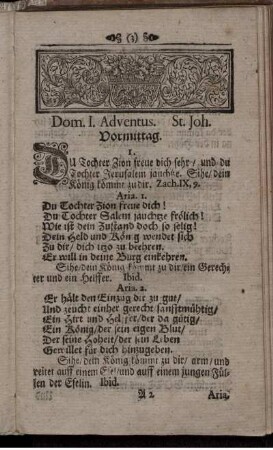 (3)
Dom. I. Adventus. St. Joh.
Vormittag.
1.
DU Tochter Zion freue dich sehr/ und du
Tochter Jerusalem jauchze. Sihe/ dein
König kömmt zu dir. Zach. IX, 9.
Aria. 1.
Du Tochter Zion freue dich!
Du Tochter Salem jauchtze frölich!
Wie ist dein Zustand doch so selig!
Dein Held und König wendet sich
Zu dir/ dich itzo zu beehren.
Er will in deine Burg einkehren.
Sihe/ dein König kömmt zu dir/ ein Gerech-
ter und ein Helffer. Ibid.
Aria. 2.
Er hält den Einzug dir zu gut/
Und zeucht einher gerecht sanfftmühtig/
Ein Hirt und Helffer/ der da gütig/
Ein König/ der sein eigen Blut/
Der seine Hoheit/ der sein Leben
Gewillet für dich hinzugeben.
Sihe/ dein König kömmt zu dir/ arm/ und
reitet auff einem Esel/ und auff einem jungen Fül-
len der Eselin. Ibid.
A 2. Aria.